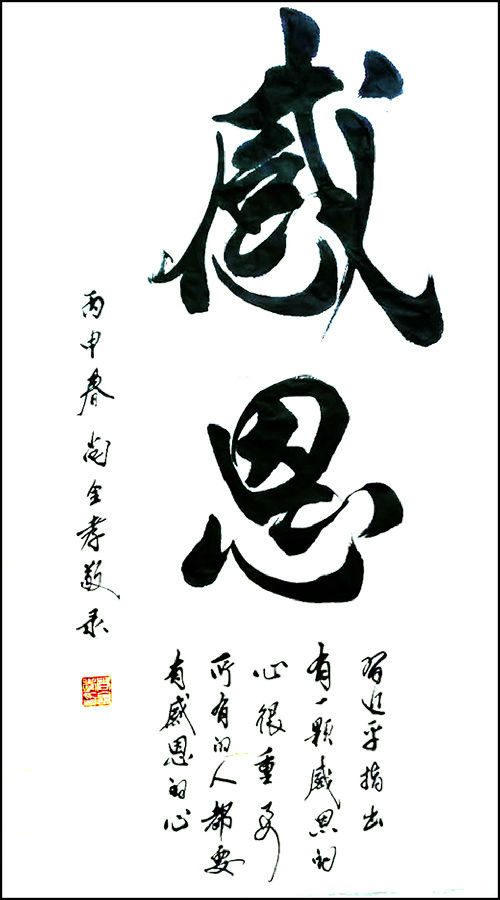 感恩
习近平指出
有一颗感恩的
心很重要
所有的人都要
有感恩的心
丙申春尚全孝敬录